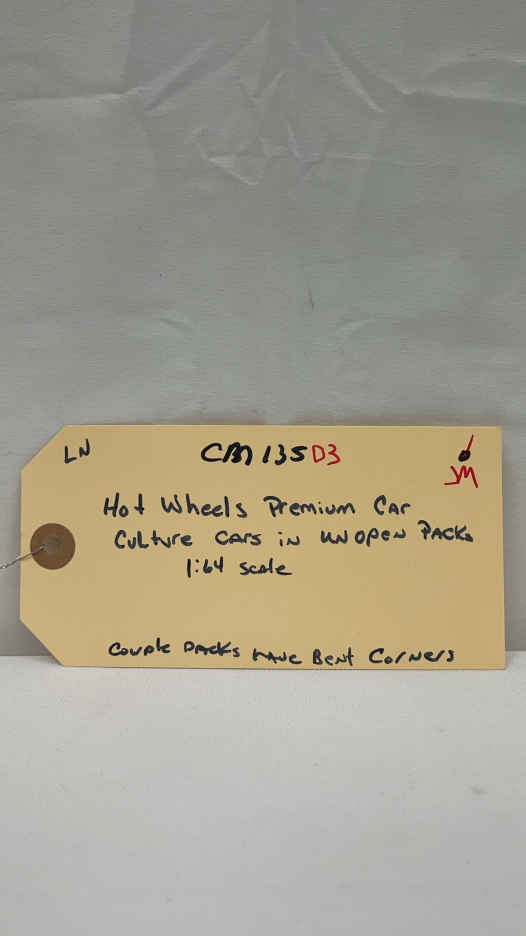 LN
CM135 D3
JM
Hot Wheels Premium Car
Culture Cars in UNOPEN Packs
1:64 scale
Couple Packs Have Bent Corners